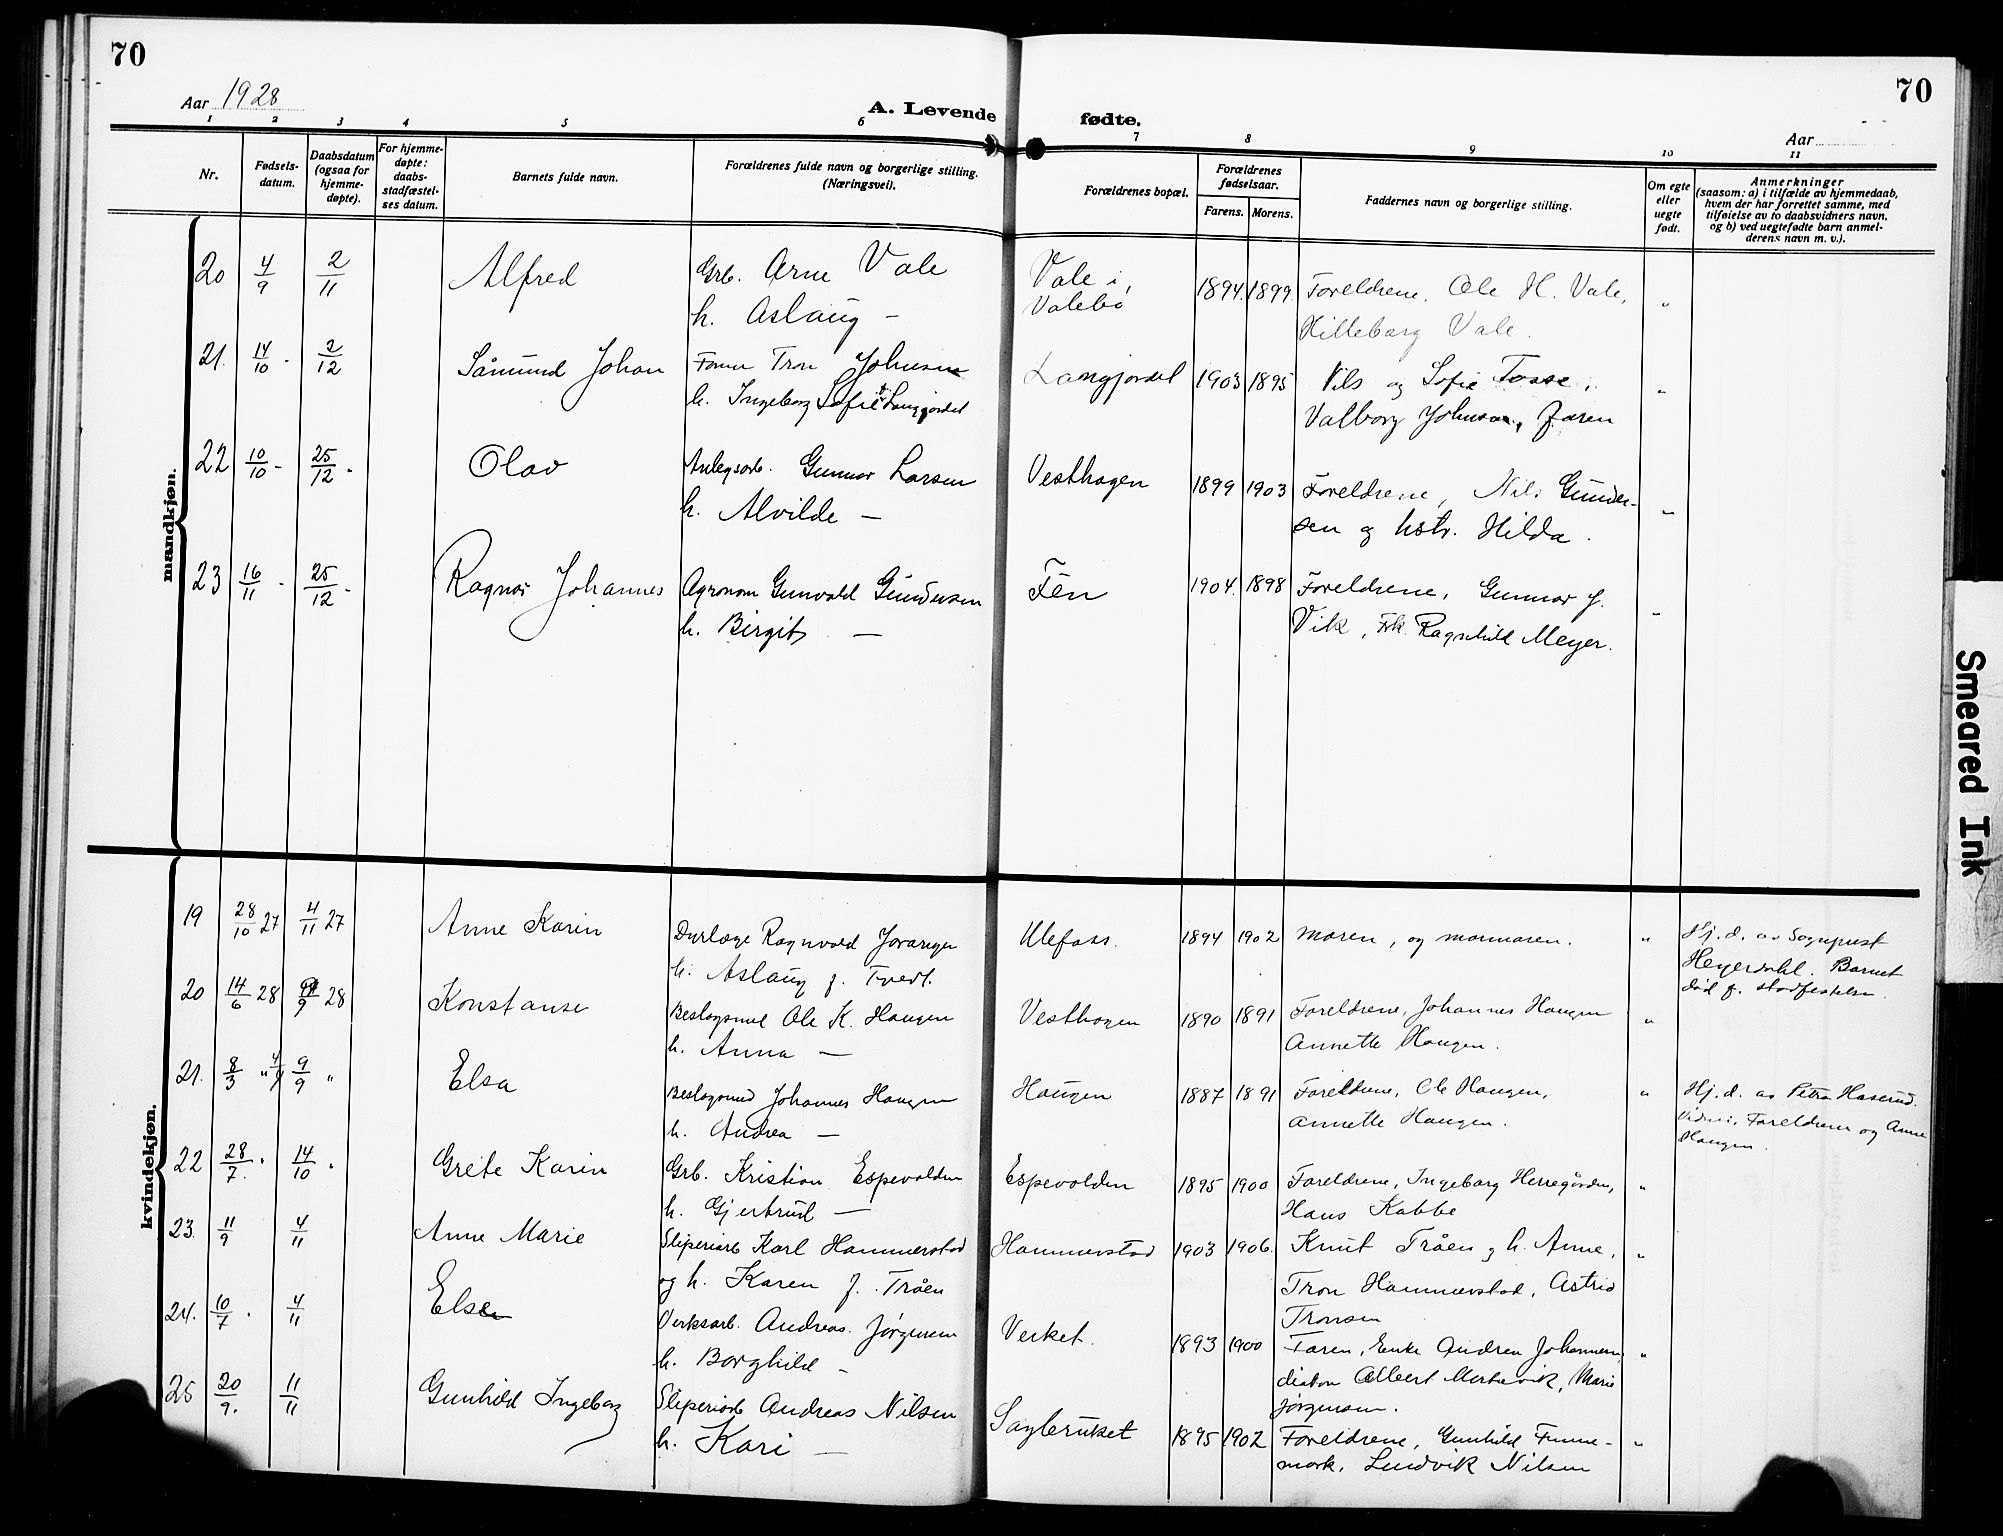 70
70
Aar 1928
A. Levende fødte.
Aar
1 2 3 4 5 6 7 8 9 10 11
Nr.
Fødsels-
datum.
Daabsdatum
(ogsaa for
hjemme-
døpte).
For hjemme-
døpte:
daabs-
stadfæstel-
ses datum.
Barnets fulde navn.
Forældrenes fulde navn og borgerlige stilling.
(Næringsvei).
Forældrenes bopæl.
Forældrenes
fødselsaar.
Farens. Morens.
Faddernes navn og borgerlige stilling.
Om egte
eller
uegte
født.
Anmerkninger
(saasom: a) i tilfælde av hjemmedaab,
hvem der har forrettet samme, med
tilføielse av to daabsvidners navn,
og b) ved uegtefødte barn anmel-
derens navn m. v.).
mandkjøn.
20 4/9 2/11 Alfred Grb. Arne Vale Vale i, 1894. 1899. Foreldrene, Ole H. Vale, "
h. Aslaug — Valebø Hilleborg Vale.
21. 14/10 - 2/12 Såmund Johan Tron Johnsen Langjordet 1903 1895 Nils og Sofie Tosse, "
h. Ingeborg Sofie Langjordet Valborg Johnson, Faren
22 10/10 - 25/12 - Olav Anlegsarb. Gunnar Larsen Vesthagen 1899 1903 Foreldrene, Nils Gunder- "
h. Alvilde — sen og hstr. Hilda.
23 16/11 - 25/12 - Ragnar Johannes Agronom Gunvald Gundersen Fen 1904. 1898 Foreldrene, Gunnar J. "
h. Birgit — Vik, Frk. Ragnhild Meyer.
kvindekjøn.
19 28/10 27 4/11 27 Anne Karin Dyrlæge Ragnvald Ulefoss. 1894 1902 moren, og mormoren. " Hj. d. av Sogneprest
h. Aslaug f. Tvedt. Heyerdahl. Barnet
død f. stadfestelse.
20 14/6 28 9/9 28 Konstanse Beslagsmed Ole K. Haugen Vesthagen 1890 1891 Foreldrene, Johannes Haugen "
h. Anna — Annette Haugen.
21. 8/3 " 4/4 9/9 " Elsa Beslagsmed Johannes Haugen Haugen 1887 1891 Foreldrene, Ole Haugen, " Hj. d. av Petra Haserud.
h. Andrea — Annette Haugen. Foreldrene og Anne
Haugen.
22 28/7. " 14/10 " Grete Karin Grb. Kristian Espevolden Espevolden 1895 1900 Foreldrene, Ingeborg Herregården, "
h. Gjertrud — Hans Kabbe
23. 11/9 4/11 Anne Marie Sliperiarb Karl Hammerstad Hammerstad 1903 1906. Knut Tråen og h. Anne, "
og h. Karen f. Tråen Tron Hammerstad, Astrid
Tronsen
24. 10/7 . 4/11 Else Verksarb. Andreas Jørgensen Verket. 1893 1900 Faren, Enke Andrea Johannesen, "
h. Borghild — diakon Albert, Marie
Jørgensen.
25 20/9. 11/11 Gunhild Ingeborg Sliperiarb Andreas Nilsen Sagbruket 1895 1902 Foreldrene, Gunhild Finne- "
h. Kari — mark, Ludvik Nilsen
Smeared Ink